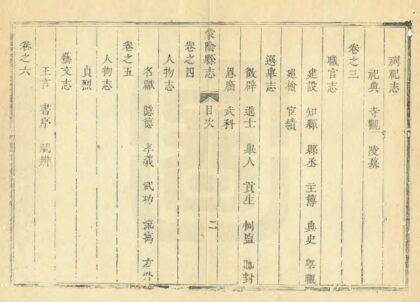 祠祀志
祀典 寺觀 陵墓
卷之三
職官志
建設 知縣 縣丞 主簿 典史 學職
選舉志
徵辟 進士 舉人 貢生 例監 馳封
恩廕 武科
蒙陰縣志 目次 二
卷之四
人物志
名職 隱逸 孝義 武功 流寓 方外
卷之五
人物志
貞烈
藝文志
王言 書序
卷之六